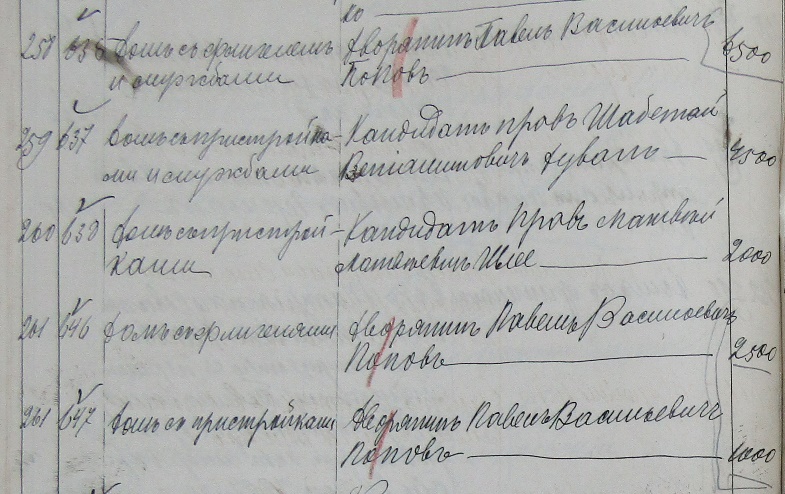 ко
258 636 домъ съ флигелемъ Дворянинъ Павелъ Васильевичъ 6500
и службами Поповъ
259 637 домъ съ пристройка- Кандидатъ правъ Шабетай
ми и службами Веніаминовичъ Дуванъ 4500
260 638 домъ съ пристрой- Кандидатъ правъ Матвей
ками Матвѣевичъ 2000
261 646 домъ съ флигелями Дворянинъ Павелъ Васильевичъ
Поповъ 2500
261 647 домъ съ пристройками Дворянинъ Павелъ Васильевичъ
Поповъ 1000